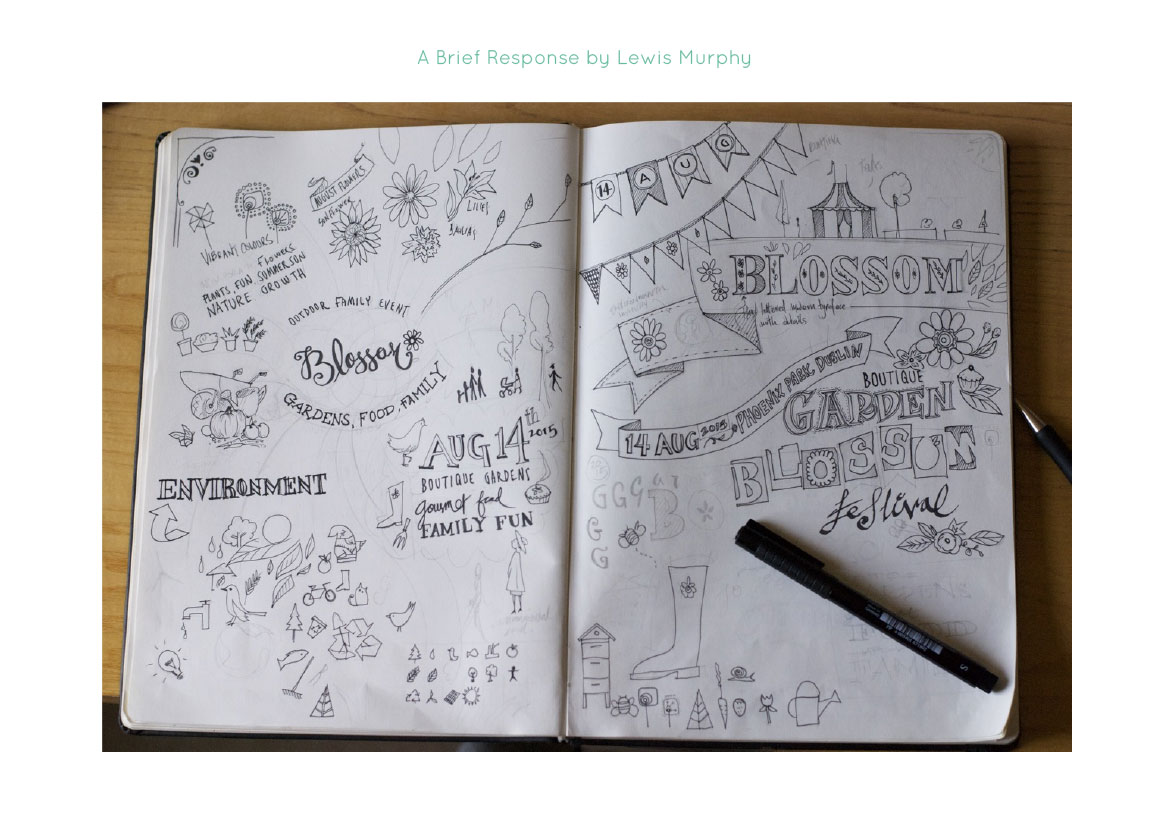 A Brief Response by Lewis Murphy
AUGUST FLOWERS
Sunflower
LILIES
DALIAS
VIBRANT COLOURS
FLOWERS
PLANTS, FUN SUMMERSON
NATURE GROWTH
OUTDOOR FAMILY EVENT
Blossom
GARDENS, FOOD, FAMILY
AUG 14th 2015
BOUTIQUE GARDENS
gourmet food
FAMILY FUN
ENVIRONMENT
14 AUG
bunting
Talks
BLOSSOM
hand lettered modern typeface
with details
14 AUG 2015 PHOENIX PARK DUBLIN
BOUTIQUE
GARDEN
BLOSSOM
festival
G G G
B
G
G